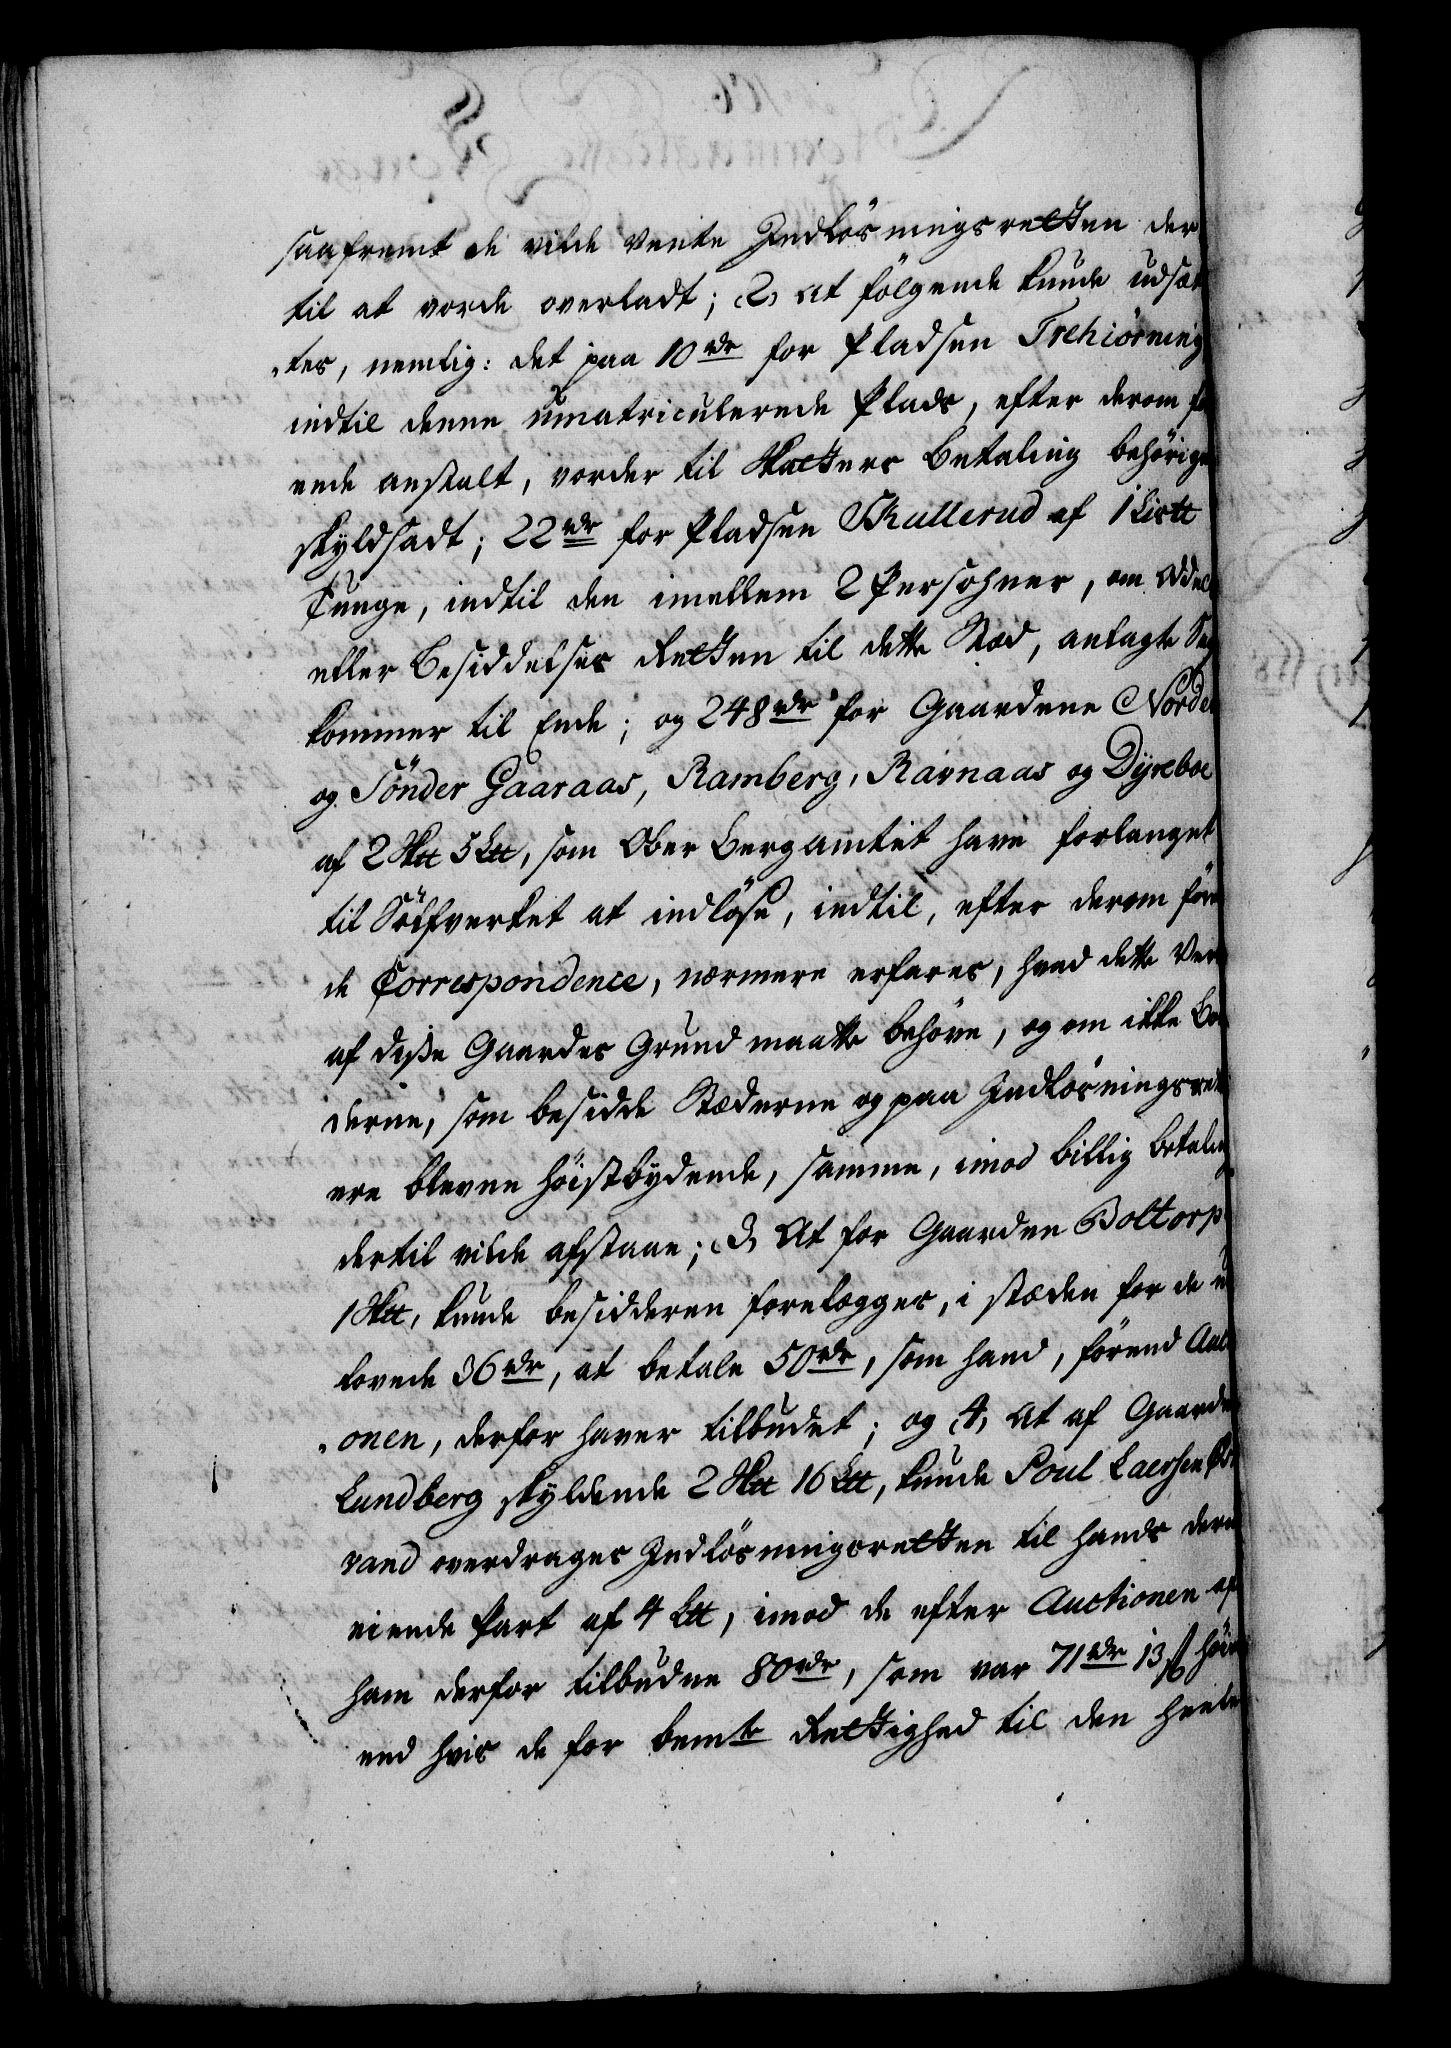 saafremt de vilde vente Indløsningsretten der
til at vorde overladt; 2, At følgende kunde udsæt
tes, nemlig: det paa 10 rdr for Pladsen Trehiørning
indtil denne umatriculerede Plads, efter derom
ende anstalt, vorder til Skatters Betaling behørigen
skyldsadt; 22 rdr for Pladsen Skullerud af 1 Kistt
Tunge, indtil den imellem 2 Persohner, om Odel
eller Besiddelses Retten til dette Stæd, anlagte Sag
kommer til Ende; og 248 rdr for Gaardene Norde
og Sønder Gaaraas, Ramberg, Ravnaas og Dyreboe
af 2 Sktt 5 Ltt, som Ober Bergamtet have forlanget
til Sølfverket at indløse, indtil, efter derom
de Correspondence, nærmere erfares, hvad dette Ver
af disse Gaardes Grund maatte behøve, og om ikke
derne, som besidde Stæderne og paa Indløsningsret
ere blevne høistbydende, samme, imod billig betaling
dertil vilde afstaae; 3, At for Gaarden Boltorp
1 Sktt, kunde besidderen forelægges, i stæden for de
lovede 36 rdr, at betale 50 rdr, som hand, førend Aucti
onen, derfor haver tilbudet; og 4, At af Gaarden
Lundberg skyldende 2 Sktt 16 Ltt, kunde Poul Laersen
vand overdrages Indløsningsretten til hands deri
eiende Part af 4 Ltt, imod de efter Auctionen af
ham derfor tilbudne 80 rdr, som var 71 rdr 13 s høi
end hvis de for bemte Rettighed til den heele